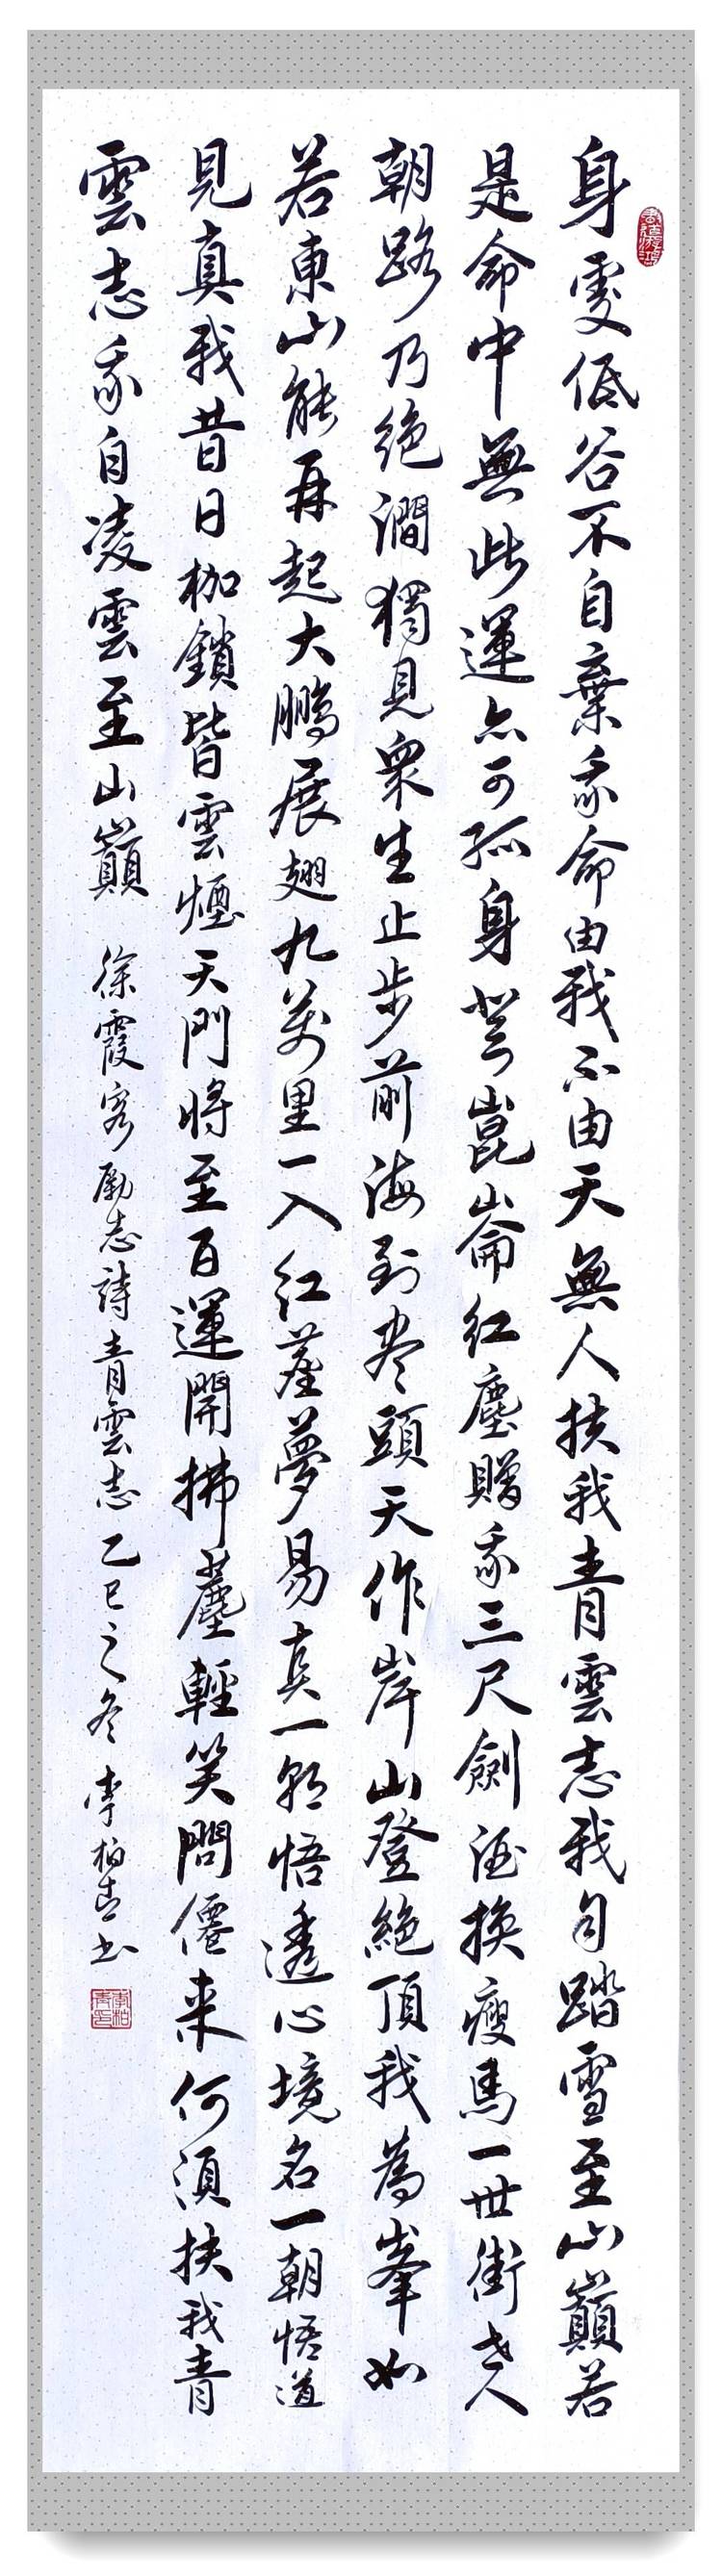 身處低谷不自棄我命由我不由天無人扶我青雲志我自踏雪至山巔若
是命中無此運亦可孤身登崑崙紅塵贈我三尺劍酒換瘦馬一世街老人
朝路乃絕澗獨見眾生止步前海到盡頭天作岸山登絕頂我為峯如
若東山能再起大鵬展翅九萬里一入紅塵夢易真一朝悟透心境名一朝悟道
見真我昔日枷鎖皆雲煙天門將至百運開拂塵輕笑問僊來何須扶我青
雲志我自凌雲至山巔 徐霞客勵志詩青雲志乙巳之冬李柏青书
李柏青印